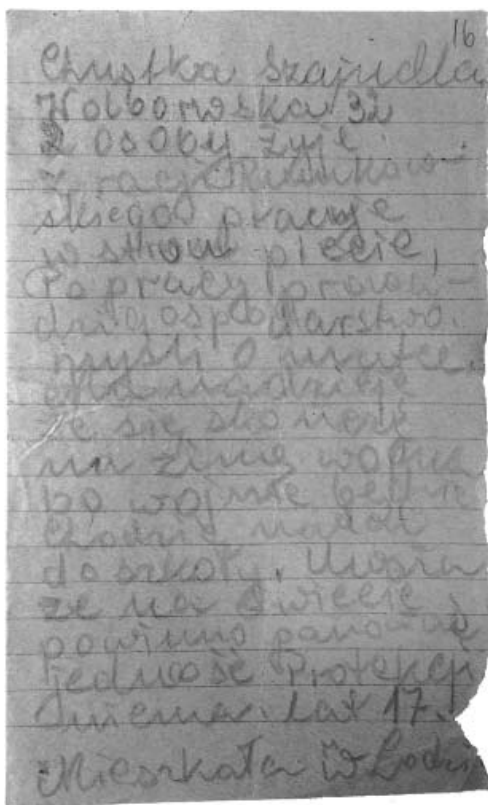 16
Chustka Szajndla
Wolborska 32
2 osoby żyje
z racji
skiego pracuje
w strow plecie,
Po pracy prowa-
dzi gospodarstwo.
myśli o matce.
Ma nadzieje
że się skończe
na zimę wojna
po wojnie będzie
chodzić nadal
do szkoły. Uważa
że na świecie
powinno panować
jedność Protekcji
niema. Lat 17.
Mieszkała w Łodzi